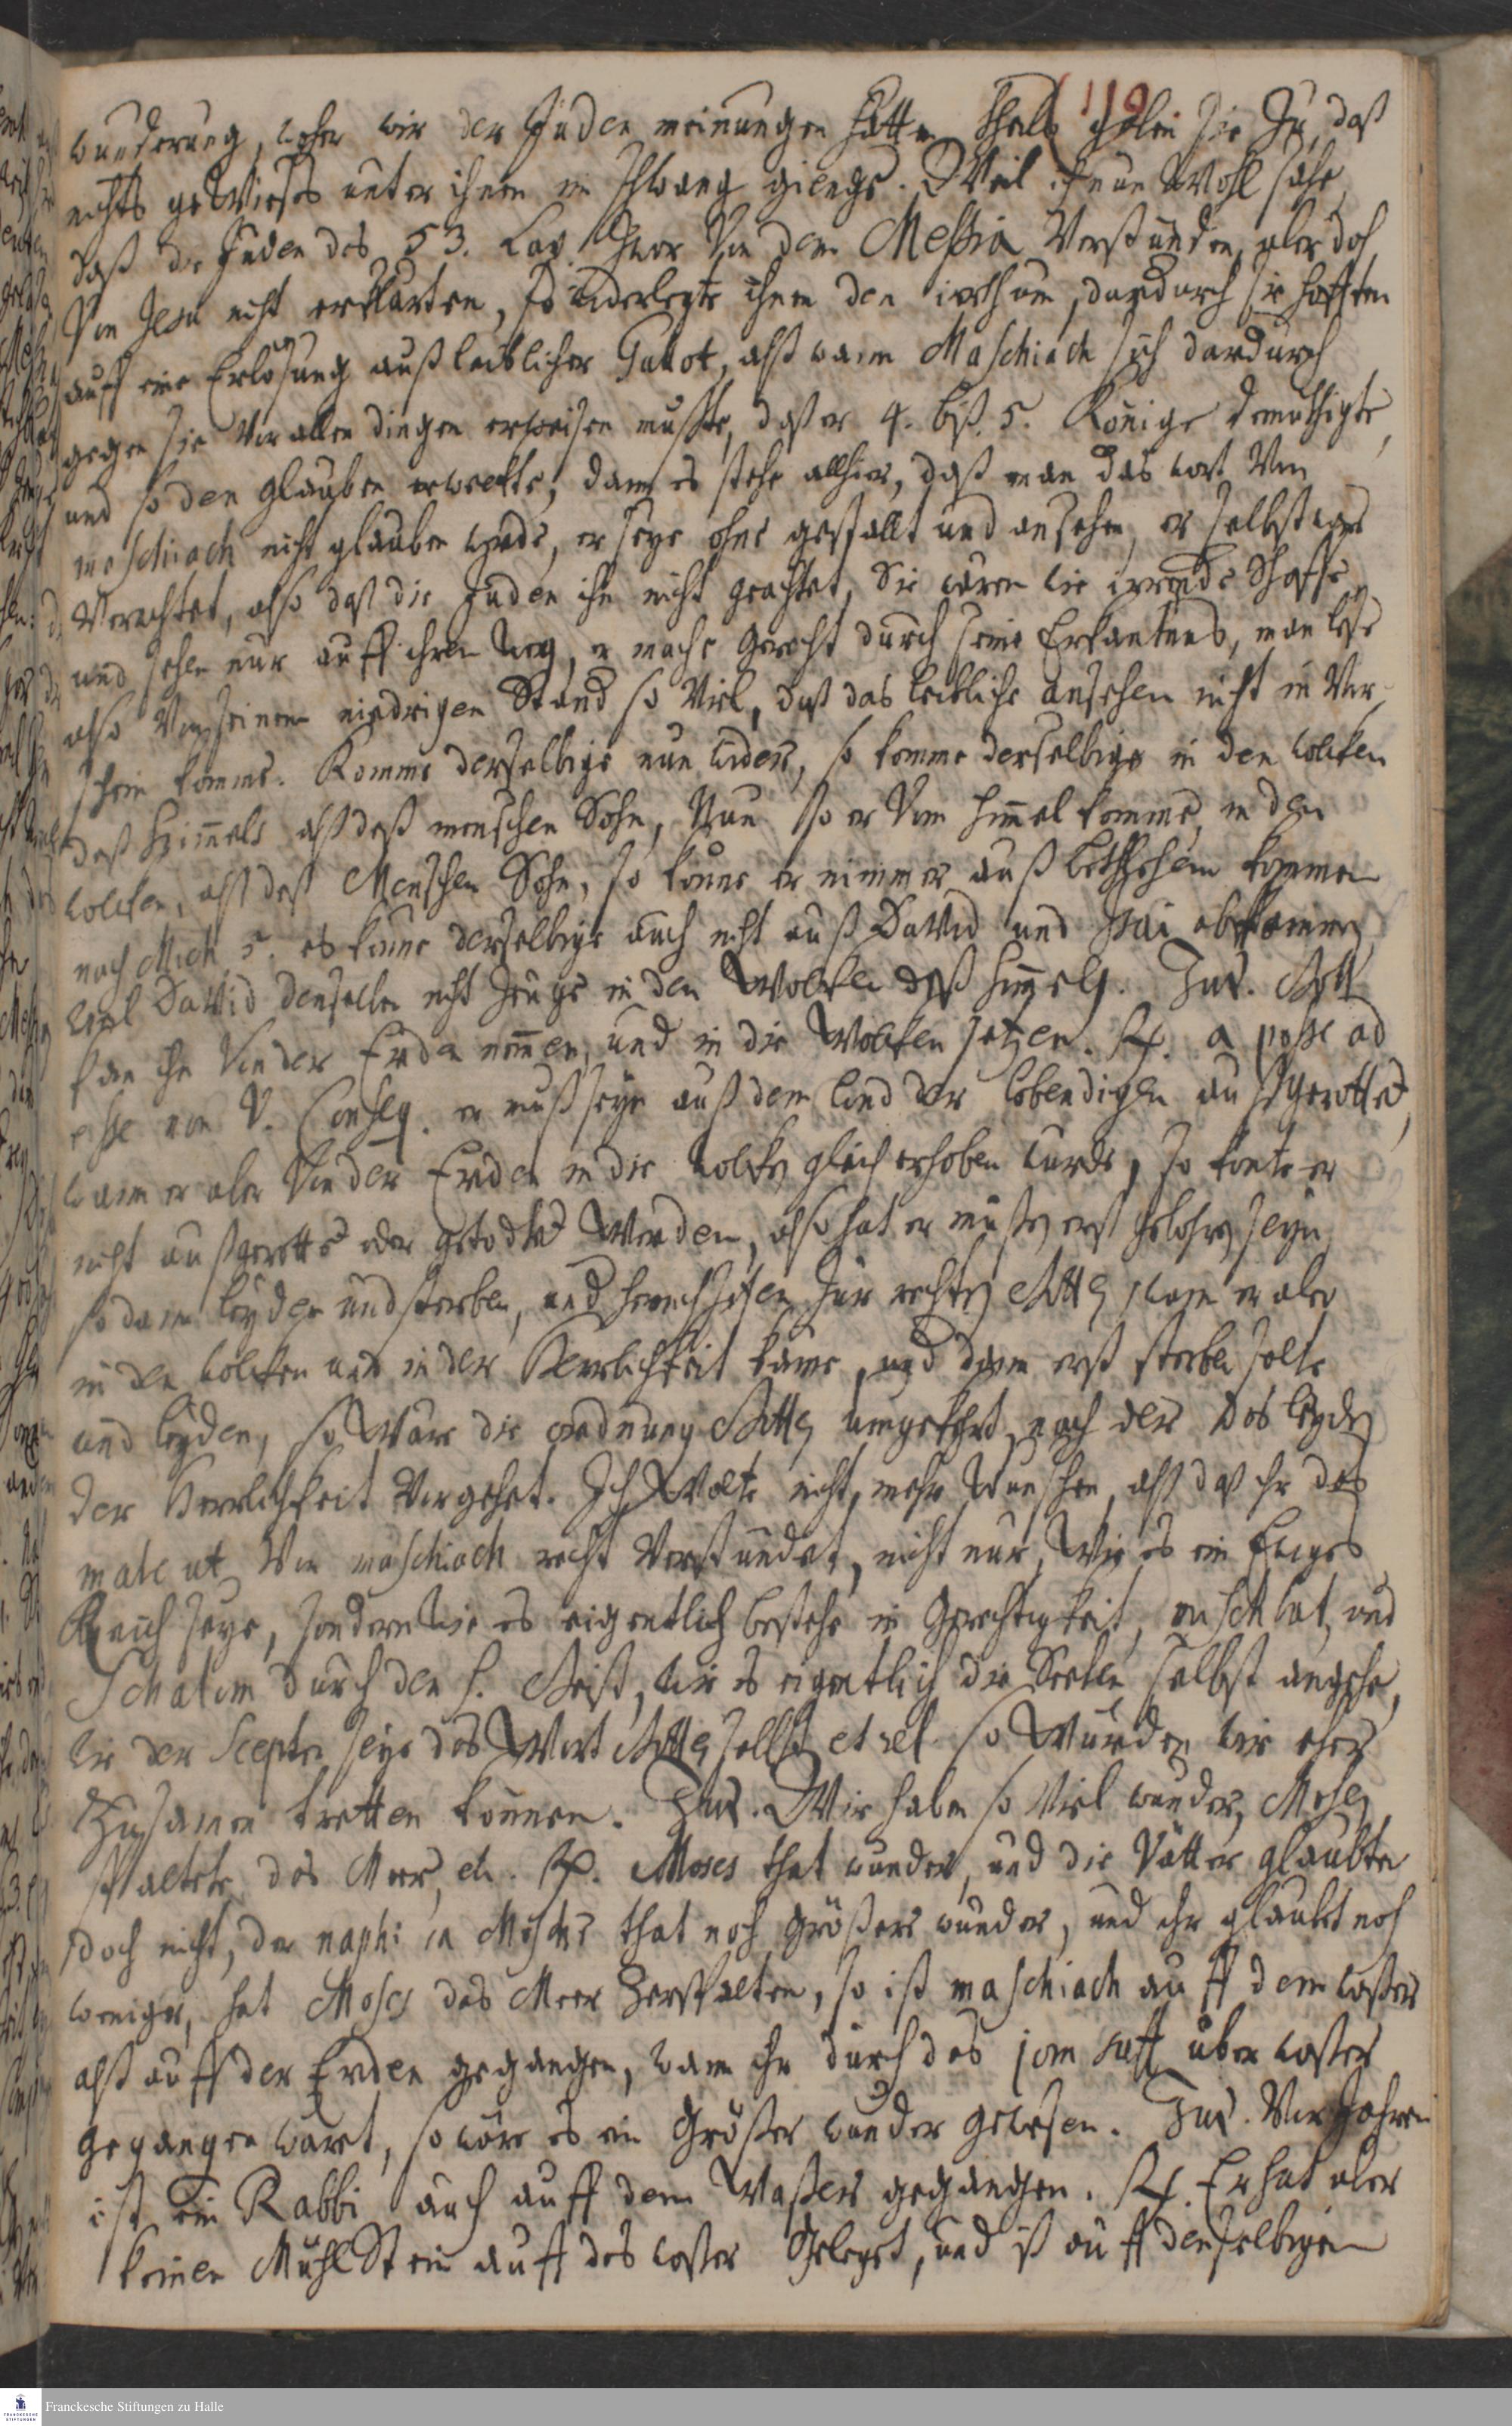 119
wunderung, woher wir der Juden meinungen hätten, theils fielen sie zu, daß
nichts gewießes unter ihnen im schwang gienge. Weil ich nun wohl sahe,
daß die Juden das 53. Cap. zwar von dem Messia verstünden, aber doch
von Jesu nicht erklärten, so widerlegte ihnen den irrthum, dardurch sie hofften
auff eine Erlösung auß leiblicher Gallot, alß wann Maschiach sich dardurch
gegen sie vor allen dingen erweisen müste, daß er 4. biß 5. Könige demüthigte,
und so den glauben erweckte; dann es stehe allhier, daß man das wort von
maschiach nicht glauben werde, er seye ohne gestallt und ansehen, er selbst ware
Verachtet, also daß die Juden ihn nicht geachtet, Sie wären wie irrende Schaffe,
und sehen nur auff ihren weg, er mache gerecht durch seine Erkantnus, man lese
also von seinem nidrigen Stand so viel, daß das leibliche ansehen nicht in Vor-
schein komme. Komme derselbige nun wider, so komme derselbige in den wolcken
deß Himmels alß deß menschen Sohn, Nun so er vom himmel komme, in den
wolcken, alß deß Menschen Sohn, so könne er nimmer auß bethlehem kommen
nach Mich. 5. es könne derselbige auch nicht auß David und Isai abkommen,
weil David denselben nicht zeuge in den Wolcken deß himmels. Jud. Gott
kan ihn von der Erden nemmen, und in die Wolcken setzen. R. a posse ad
esse non V. Conseq. er muß seyn auß dem land der lebendigen außgerottet,
wann er aber von der Erden in die wolcken gleich erhoben wurde, so könte er
nicht außgerottet oder getödtet werden, also hat er müßen erst gebohren seyn,
so dann leyden und sterben, und herrschen zur rechten Gottes, wann er aber
in den wolcken und in der Herrlichkeit käme, und dann erst sterben solte
und leyden, so wäre die ordnung Gottes umgekehrt, nach der das leyden
der Herrlichkeit vorgehet. Ich wolte nichts mehr wünschen, alß daß ihr das
malcut von maschiach recht verstündet, nicht nur, wie es ein Ewiges
Reich seye, sondern wie es eigentlich bestehe in gerechtigkeit, mischbat, und
Schalom durch den h. Geist, wie es eigentlich die Seelen selbst angehe,
wie der Scepter seye das Wort Gottes selbst etc. so würden wir eher
zusamen tretten können. Jud. Wir haben so viel wunder, Moses
spaltete das Meer, etc. R. Moses that wunder, und die Vätter glaubten
doch nicht, der naphi ca Mosche that noch größere wunder, und ihr glaubt noch
weniger, hat Moses das Meer zerspalten, so ist maschiach auff dem waßer
alß auff der Erden gegangen, wann ihr durch das jam suff über waßer
gegangen wäret, so wäre es ein größer wunder gewesen. Jud. Vor Jahren
ist ein Rabbi auch auff dem Waßer gegangen. R. Er hat aber
keinen Mühlstein auff das waßer gelegt, und ist auff denselbigen
Franckesche Stiftungen zu Halle